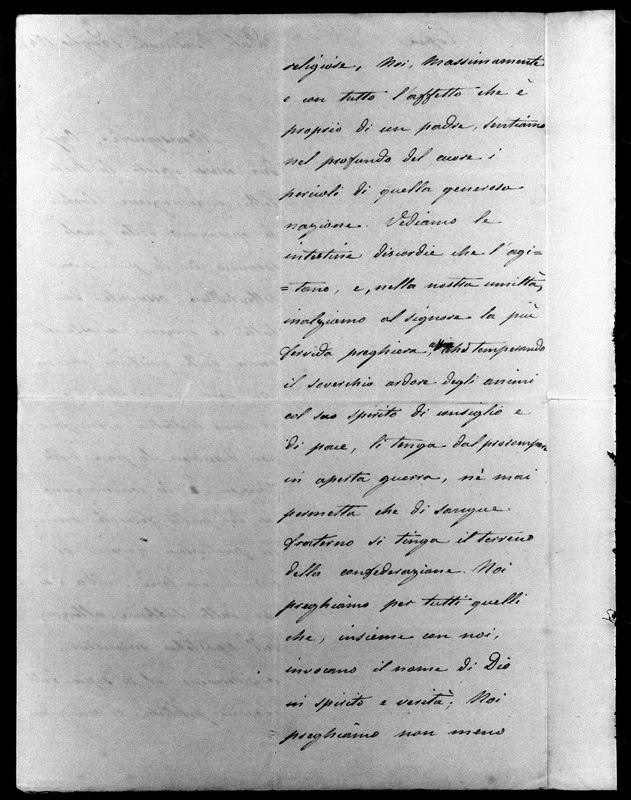 religiose, Noi, Massimamente
e con tutto l'affetto che è
proprio di un padre, sentiamo
nel profondo del cuore i
pericoli di quella generosa
nazione. Vediamo le
intestine discordie che l'agi=
=tano, e, nella nostra umiltà,
inalziamo al signore la più
fervida preghiera, che temperando
il soverchio ardore degli animi
col suo spirito di consiglio e
di pace, li tenga dal prorompere
in aperta guerra, nè mai
permetta che di sangue
fraterno si tinga il terreno
della confederazione. Noi
preghiamo per tutti quelli
che, insieme con noi,
invocano il nome di Dio
in spirito e verità; Noi
preghiamo non meno